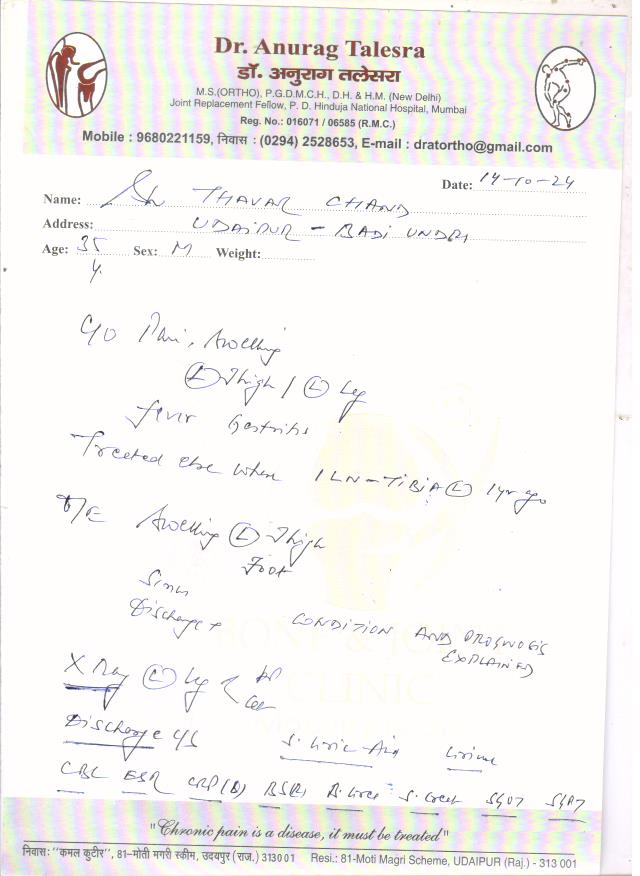 Dr. Anurag Talesra
डॉ. अनुराग तलेसरा
M.S.(ORTHO), P.G.D.M.C.H., D.H. & H.M. (New Delhi)
Joint Replacement Fellow, P. D. Hinduja National Hospital, Mumbai
Reg. No.: 016071 / 06585 (R.M.C.)
Mobile : 9680221159, निवास : (0294) 2528653, E-mail : dratortho@gmail.com
Date: 14-10-24
Name: Sh THAVAR CHAND
Address: UDAIPUR - BADI UNDRI
Age: 35 Sex: M Weight:
y.
C/O Pain, Swelling
(L) Thigh / (L) Leg
fever Gastritis
Treated else where ILN-TIBIA (L) 1yr ago
O/E Swelling (L) Thigh
Foot
Sinus
Discharge +
CONDITION AND PROGNOSIS
EXPLAINED
X Ray (L) Leg < AP
Lat
Discharge C/S S. Uric Acid Urine
CBC ESR CRP(Q) BSR) B. Urea S. Creat SGOT SGPT
BONE & JOINT
CLINIC
"Chronic pain is a disease, it must be treated"
निवास: "कमल कुटीर", 81-मोती मगरी स्कीम, उदयपुर (राज.) 313001 Resi.: 81-Moti Magri Scheme, UDAIPUR (Raj.) - 313 001